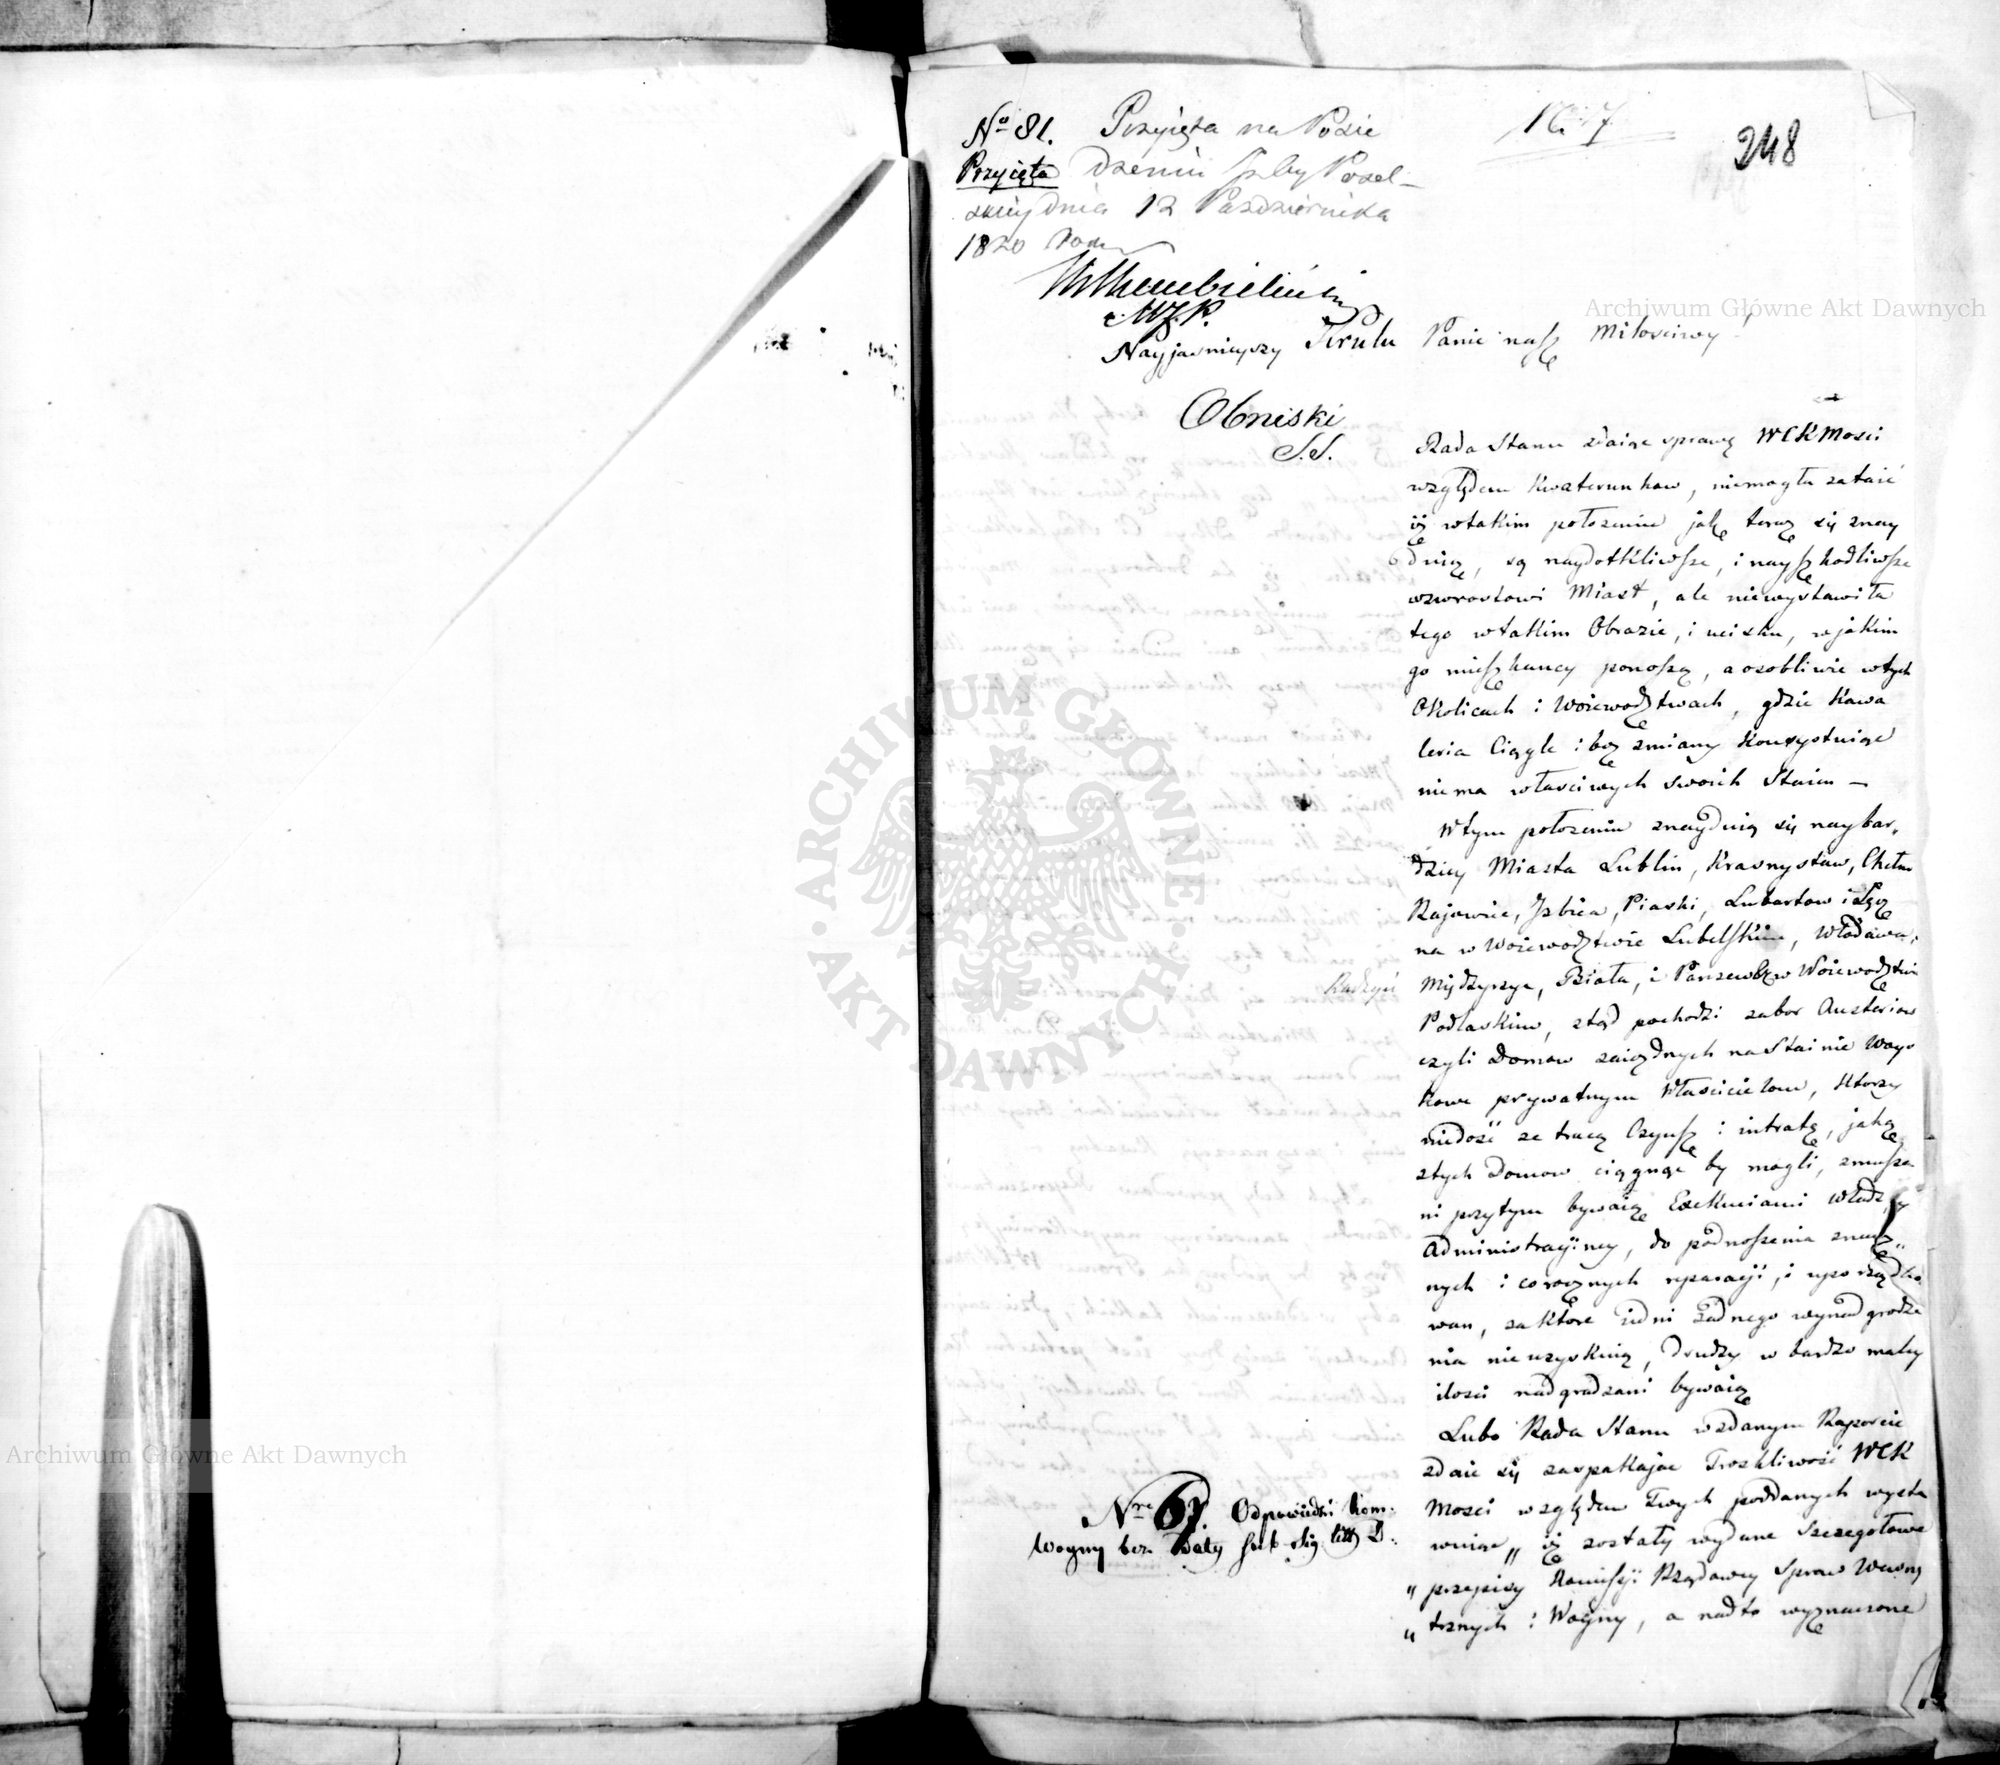 248
No 81. Przyięta na Posie
Przyięta dzeniu Izby Posel-
skiey dnia 12 Pazdziernika
1820 Roku
M.J.P.
Nayjasnieyszy Krulu Panie nasz Miłosciwy!
Obniski
S.S.
Rada Stanu zdaiąc sprawę WCKMosci
względem Kwaterunkow, niemogła zataić
iż wtakim położeniu jak teraz się znay
duią, są naydotkliwsze, i nayszkodliwsze
wzrostowi Miast, ale niewystawiła
tego wtakim Obrazie, i ucisku, w jakim
go mieszkancy ponoszą, a osobliwie wtych
Okolicach i Woiewodztwach, gdzie Kawa
leria Ciągle i bez zmiany Konsystuiąc
niema własciwych swoich Staien —
Wtym położeniu znayduią się naybar„
dziey Miasta Lublin, Krasnystaw, Chełm
Rajowiec, Izbica, Piaski, Lubartow i Łęcz
na w Woiewodztwie Lubelskim, Włodawa,
Radzyń
Międzyrzyc, Biała, i Parczew w Woiewodztwie
Podlaskim, ztąd pochodzi zabor Austeriow
czyli Domow zaiezdnych na Stainie Woys
kowe prywatnym Włascicielom, Ktorzy
niedość ze tracą Czynsz i intratę, jaką
ztych Domow ciągnąć by mogli, zmusze
ni przytym bywaią Exekuciami Władzy
Administracyiney, do podnoszenia znacz„
nych i corocznych reparacji, i uporządko
wan, za które iedni żadnego wynadgrodze
nia nie uzyskuią, drudzy w bardzo małey
ilosci nadgradzani bywaią
Lubo Rada Stanu wzdanym Raporcie
zdaie się zaspakajac Troskliwość WCK
Mosci względem Twych poddanych wysta
wuiąc „ iż zostały wydane Szczegołowe
„ przepisy Komissyi Rządowey Spraw Wewnę
„ trznych i Woyny, a nadto wyznaczone
Nro 67. Odpowiedzi Kom:
Woyny bez Daty sub sig. litt D.
Archiwum Główne Akt Dawnych
Archiwum Główne Akt Dawnych
ARCHIWUM GŁÓWNE
AKT DAWNYCH